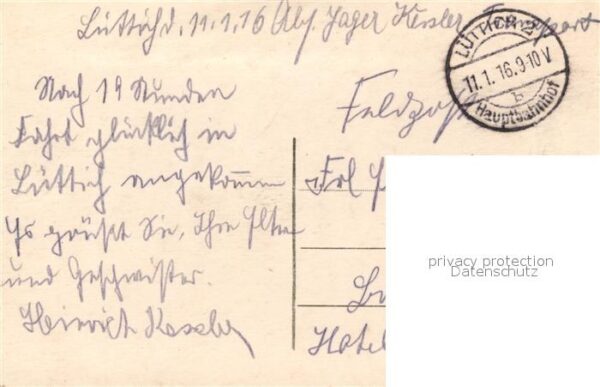 Lüttich d. 11.1.16 Abs. Jäger Kessler Transport
LÜTTICH 2
11.1.16.9-10V
b
Hauptbahnhof
Nach 19 Stunden
Fahrt glücklich in
Lüttich angekommen
Es grüßt Sie, Ihre Eltern
und Geschwister.
Heinrich Kessler
Feldpost
Frl
Hotel
privacy protection
Datenschutz